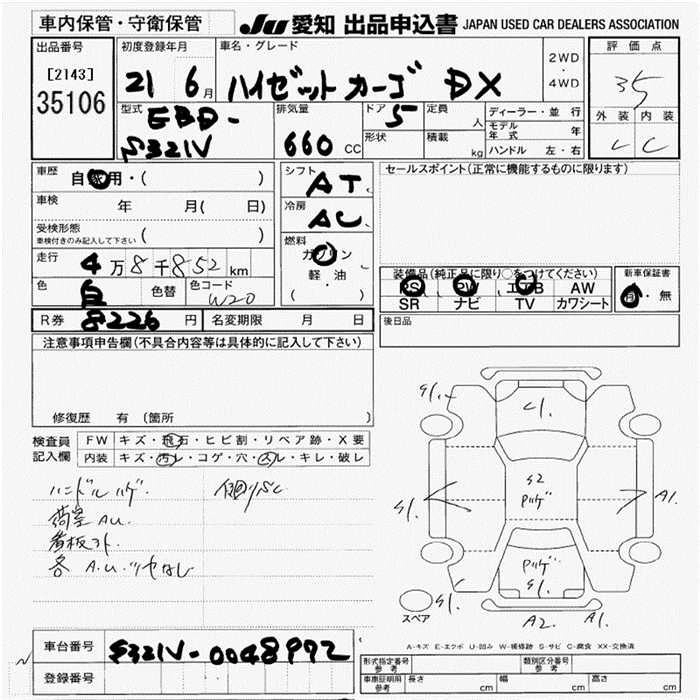 車内保管・守衛保管
JU 愛知 出品申込書 JAPAN USED CAR DEALERS ASSOCIATION
出品番号
[2143]
35106
初度登録年月
21 6月
車名・グレード
ハイゼット カーゴ DX
2WD
・
4WD
評価点
35
外装 内装
C
型式
EBD-
S321V
排気量
660 CC
ドア 5
形状
定員 人
積載 kg
ディーラー・並行
モデル年式 年
ハンドル 左・右
車歴
自家用・( )
車検 年 月( 日)
受検形態
車検付きのみ記入して下さい ( )
走行 4万8千852km
色 白 色替 色コード W20
R券 8226円 名変期限 月 日
シフト
AT
冷房
AC
燃料
ガソリン
軽油
( )
セールスポイント(正常に機能するものに限ります)
装備品(純正品に限り○をつけてください)
PS PW エアB AW
SR ナビ TV カワシート
新車保証書
有・無
後日品
注意事項申告欄(不具合内容等は具体的に記入して下さい)
修復歴 有 (箇所
検査員記入欄
FW キズ・飛石・ヒビ割・リペア跡・X要
内装 キズ・汚レ・コゲ・穴・スレ・キレ・破レ
ハンドルハゲ.
荷室AU.
看板ヌト.
各A.U.ツヤなし
下回りSC
S1.
C1.
S1.
S2
ハゲ
A1.
ハゲ
S1.
スペア
S1.
A2.
A1.
A-キズ E-エクボ U-凹み W-補修跡 S-サビ C-腐食 XX-交換済
車台番号 S321V-0048992
登録番号
形式指定番号
参考
類別区分番号
参考
車庫証明用
参考
長さ cm 幅 cm 高さ cm